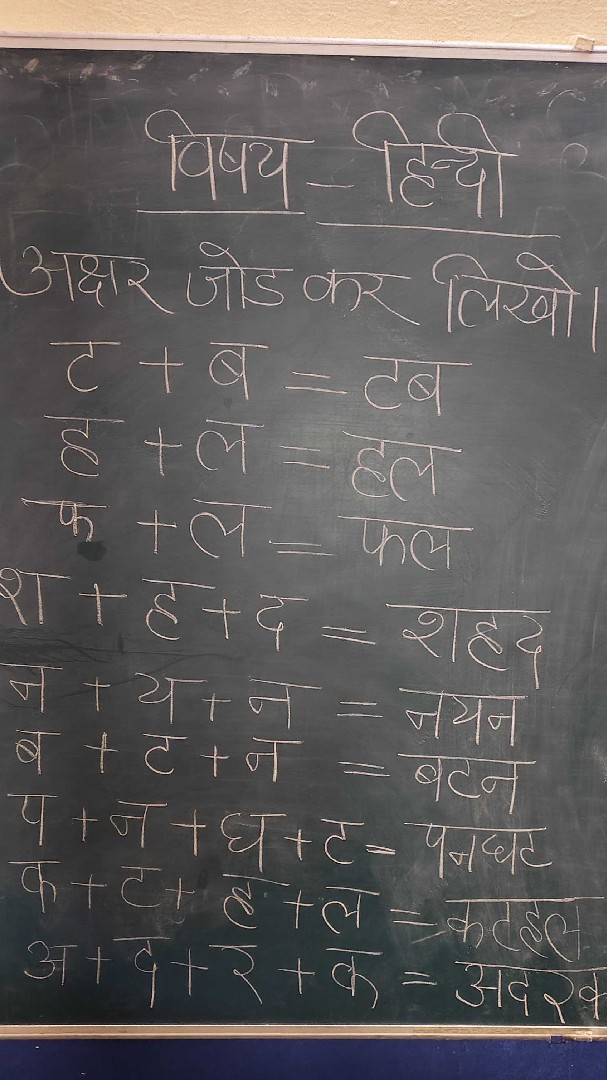 विषय - हिन्दी
अक्षर जोड कर लिखो।
ट + ब = टब
ह + ल = हल
फ + ल = फल
श + ह + द = शहद
न + य + न = नयन
ब + ट + न = बटन
प + न + घ + ट = पनघट
क + ट + ह + ल = कटहल
अ + द + र + क = अदरक